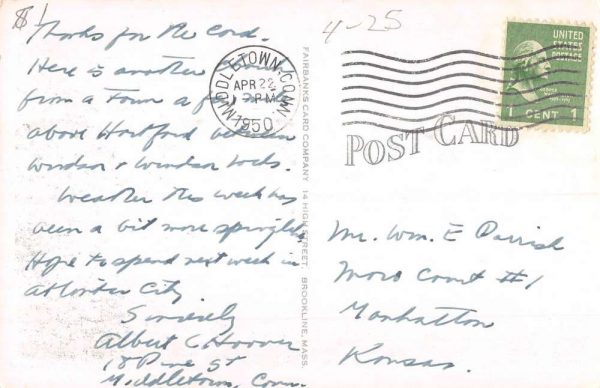 $1
Thanks for the Card.
Here is another
from a Town a few
above Hartford between
Windsor & Windsor Locks.
Weather this week has
been a bit more springlike
Hope to spend next week in
Atlantic City
Sincerely
Albert C Hoover
18 Pine St
Middletown, Conn.
MIDDLETOWN, CONN.
APR 22
PM
1950
FAIRBANKS CARD COMPANY 14 HIGH STREET, BROOKLINE, MASS.
4-25
UNITED
STATES
POSTAGE
1 CENT 1
POST CARD
Mr. Wm. E Parrish
Moro Court #1
Manhattan
Kansas.